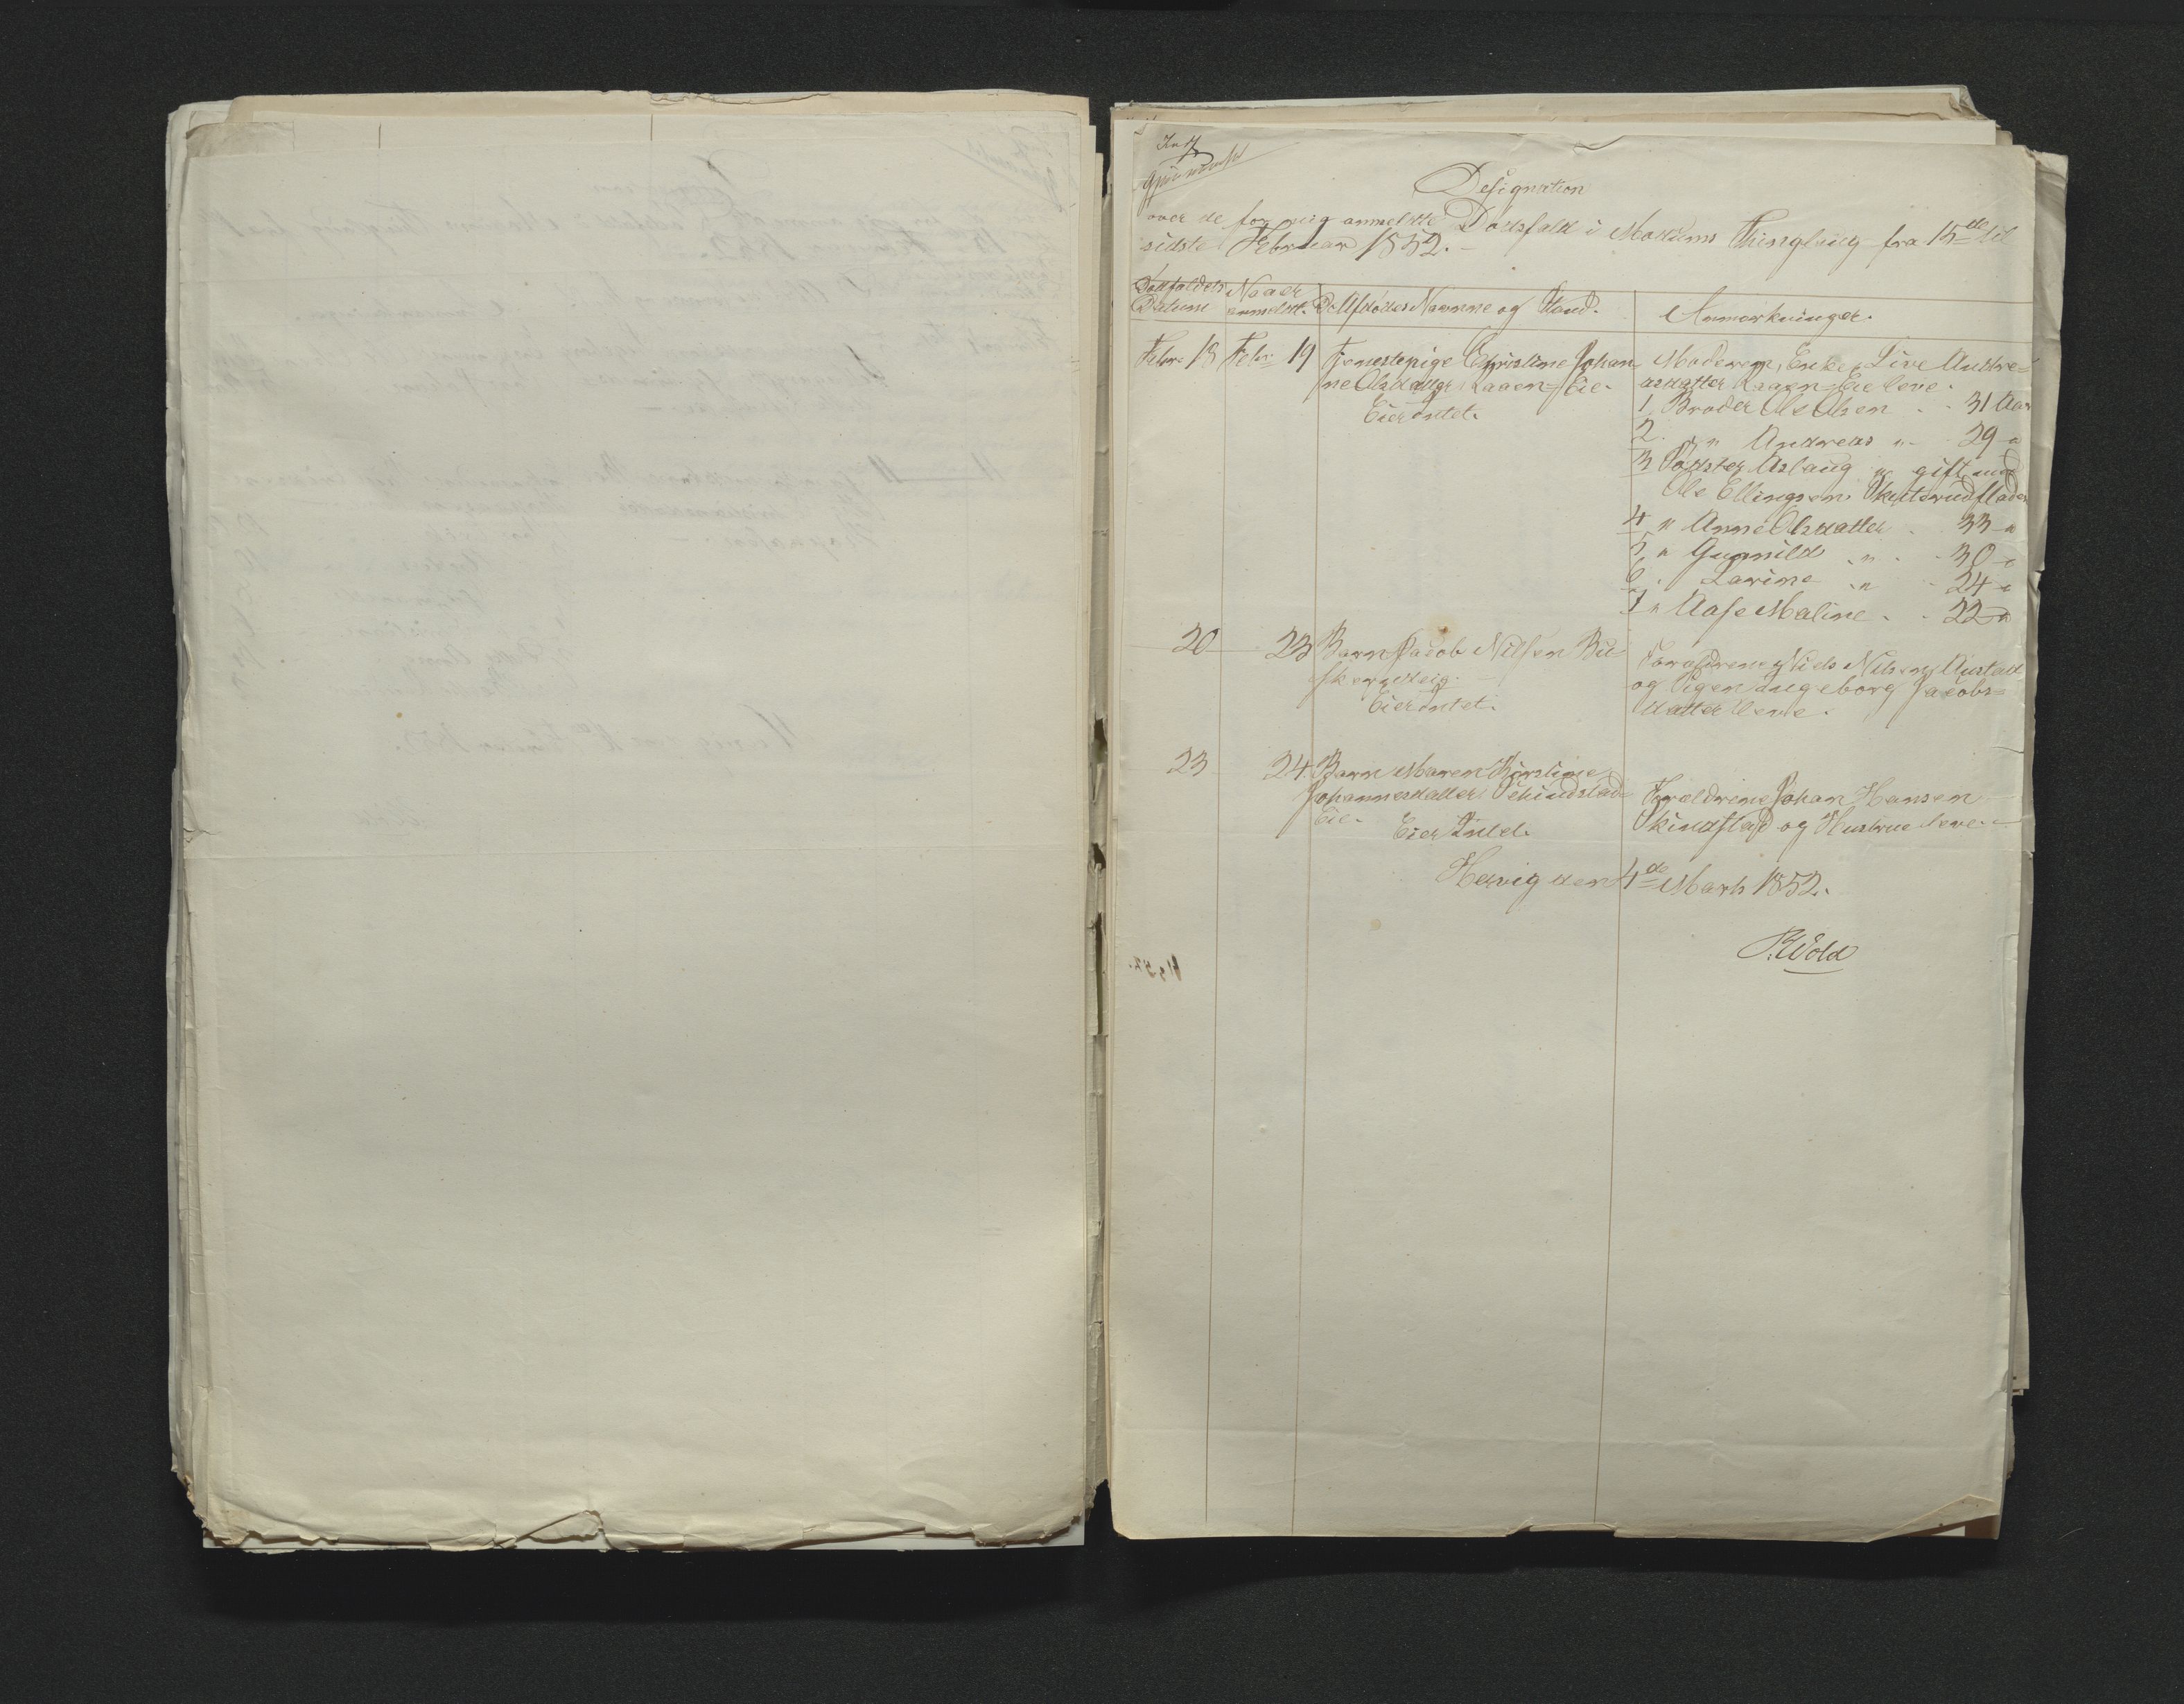 Designation
over de for mig anmeldte Dødsfald i Modums Thinglaug fra 15de til
sidste Februar 1852.
Dødsfaldets Datum
Naar anmeldt.
De Afdødes Navnne og Stand.
Anmærkninger.
Febr. 13 Febr. 19 Tjenestepige Christine Johan-
ne Olsdatter Haaen-Eie.
Eier Intet.
Moderen, Enke Live Andre-
asdatter Haaen Eie leve.
1, Broder Ole Olsen . . 31 Aar
2. " Andreas " - 29 "
3 Søster Aslaug " gift med
Ole Ellingsen Skutsrudfladen
4 " Anne Olsdatter . 33 "
5 " Gunnild " . . 30 "
6 . Larine " . 24 "
7 " Aase Maline . . 22 "
20 23 Barn Jacob Nilsen Bu-
skerudeig.
Eier Intet.
Forældrene Niels Nilsen Austad
og Pigen Ingeborg Jacobs=
datter leve.
23 24 Barn Maren Kirstine
Johannesdatter Schindstad-
Eie.
Eier Intet.
Forældrene Johan Hansen
Skindstad og Hustrue leve.
Hervig den 4de Marts 1852.
P. Wold